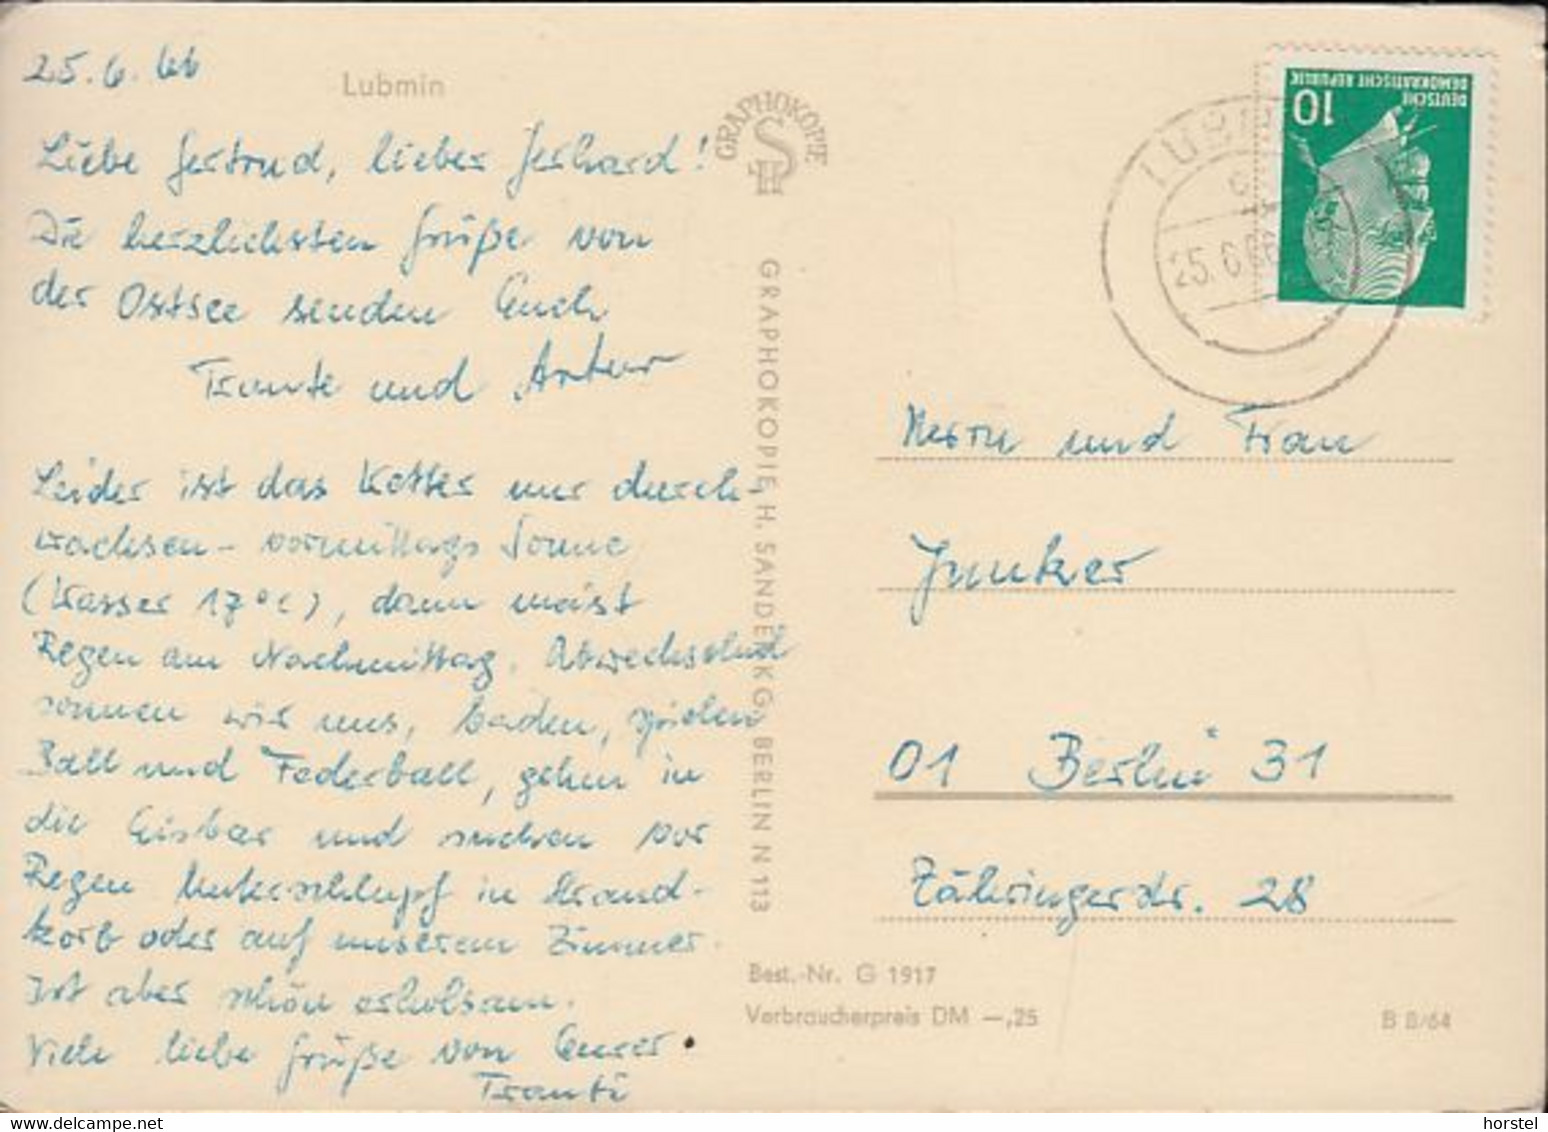 25.6.66
Lubmin
Liebe Gertrud, lieber Gerhard!
Die herzlichsten Grüße von
der Ostsee senden Euch
Traute und Artur
Leider ist das Wetter nur durch-
wachsen - vormittags Sonne
(Wasser 17°C), dann meist
Regen am Nachmittag. Abwechselnd
sonnen wir uns, baden, spielen
Ball und Federball, gehen in
die Eisbar und suchen vor
Regen Unterschlupf in Strand-
korb oder auf unserem Zimmer.
Ist aber schön erholsam.
Viele liebe Grüße von Eurer
Trauti
GRAPHOKOPIE
HS
GRAPHOKOPIE, H. SANDER KG., BERLIN N 113
DEUTSCHE
DEMOKRATISCHE REPUBLIK
10
LUBMIN
25.6.66
Herrn und Frau
Junker
01 Berlin 31
Zähringerstr. 28
Best.-Nr. G 1917
Verbraucherpreis DM —,25
B 8/64
Ihr Bilderalbum - horstel